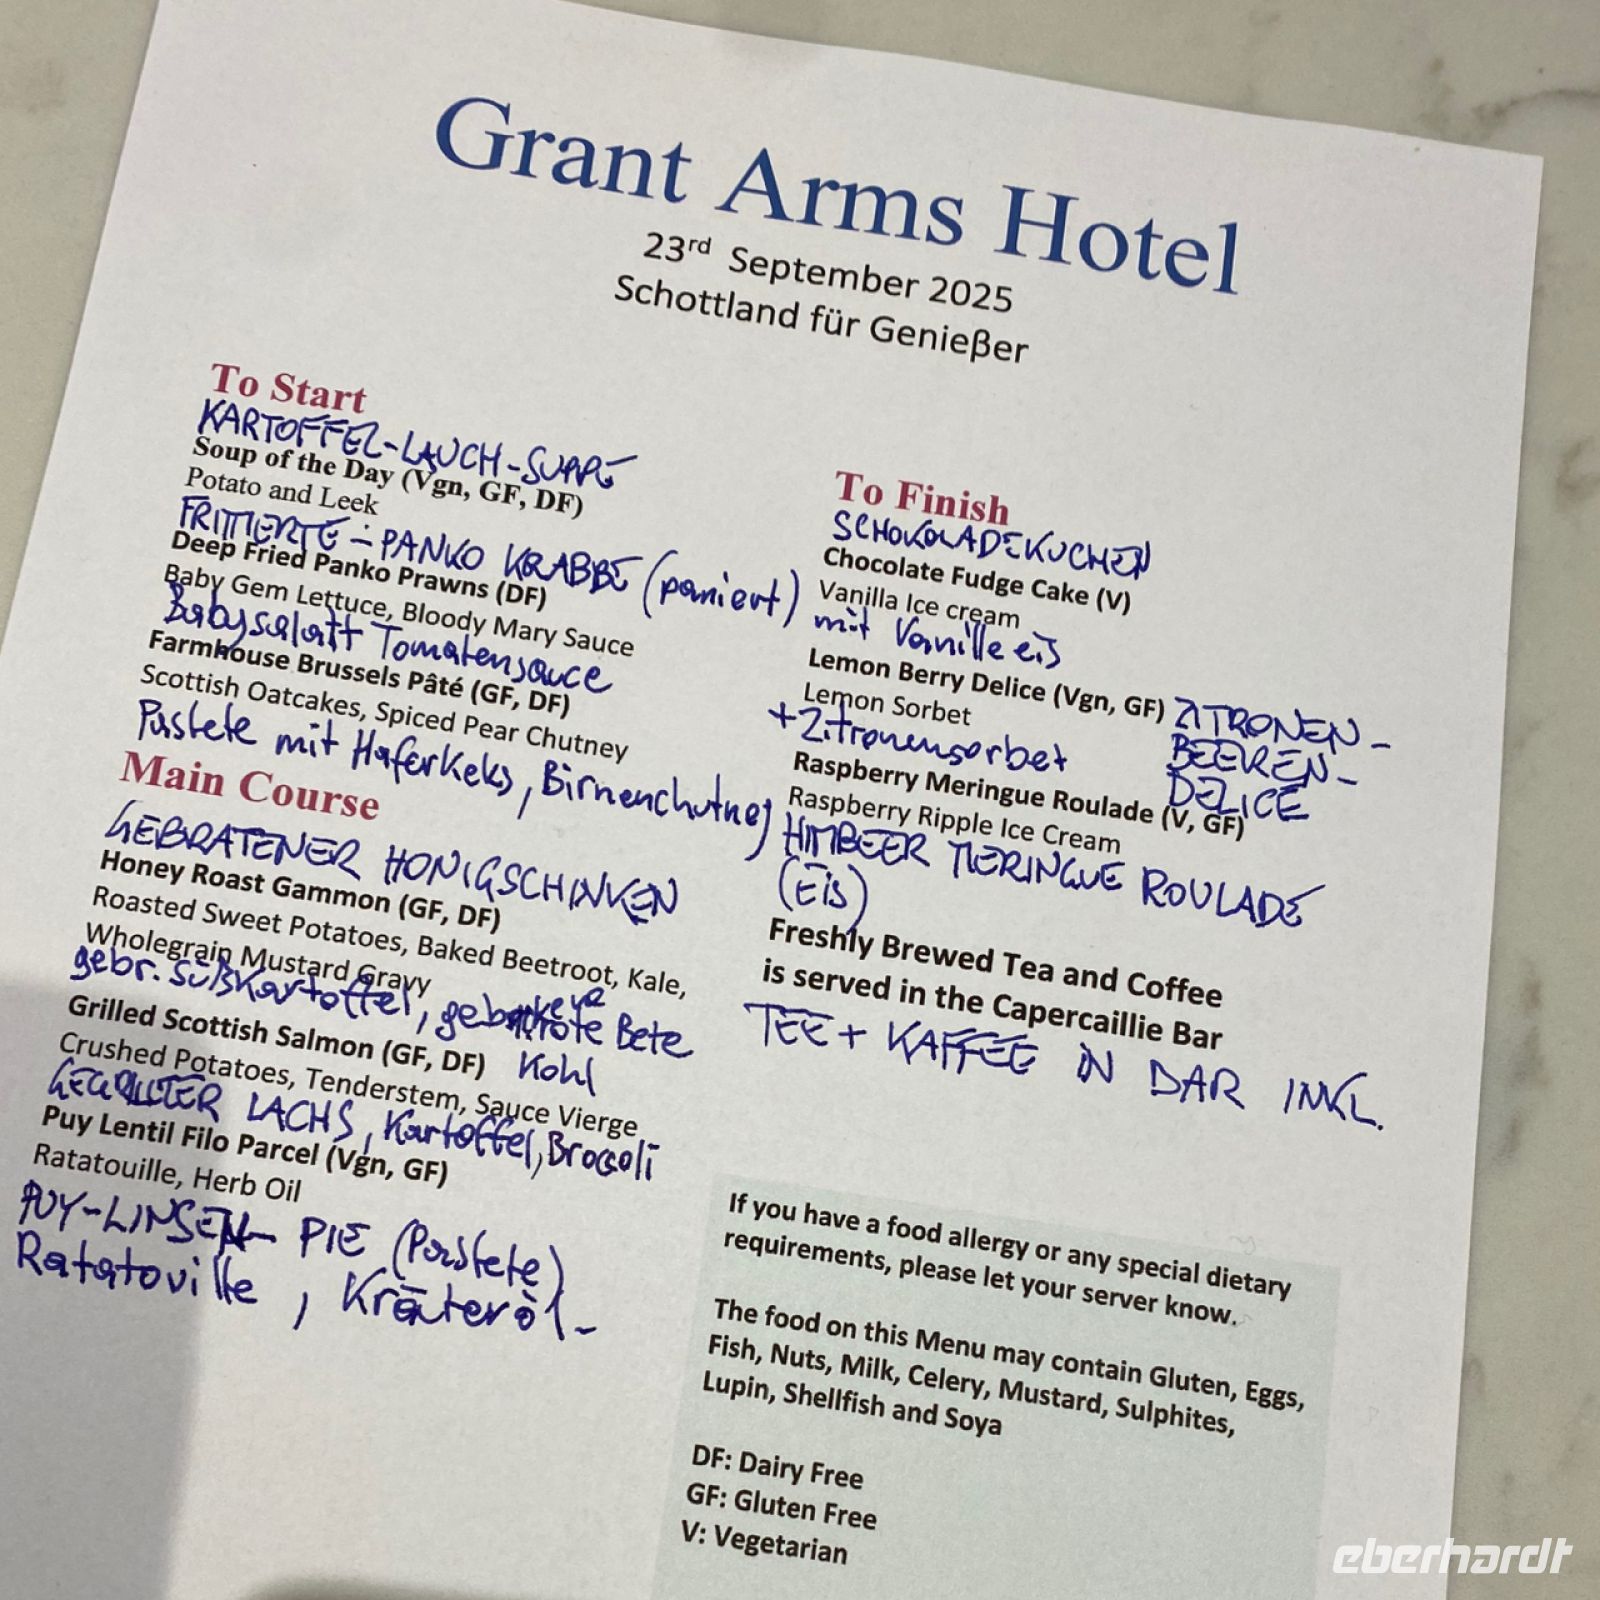 Grant Arms Hotel
23rd September 2025
Schottland für Genießer
To Start
KARTOFFEL-LAUCH-SUPPE
Soup of the Day (Vgn, GF, DF)
Potato and Leek
FRITTIERTE - PANKO KRABBE (paniert)
Deep Fried Panko Prawns (DF)
Baby Gem Lettuce, Bloody Mary Sauce
Babysalatt Tomatensauce
Farmhouse Brussels Pâté (GF, DF)
Scottish Oatcakes, Spiced Pear Chutney
Pastete mit Haferkeks, Birnenchutney
Main Course
GEBRATENER HONIGSCHINKEN
Honey Roast Gammon (GF, DF)
Roasted Sweet Potatoes, Baked Beetroot, Kale,
Wholegrain Mustard Gravy
gebr. Süßkartoffel, gebackene rote Bete
Kohl
Grilled Scottish Salmon (GF, DF)
Crushed Potatoes, Tenderstem, Sauce Vierge
GEGRILLTER LACHS, Kartoffel, Broccoli
Puy Lentil Filo Parcel (Vgn, GF)
Ratatouille, Herb Oil
PUY-LINSEN- PIE (Pastete)
Ratatouille, Kräuteröl-
To Finish
SCHOKOLADEKUCHEN
Chocolate Fudge Cake (V)
Vanilla Ice cream
mit Vanilleeis
Lemon Berry Delice (Vgn, GF)
Lemon Sorbet
ZITRONEN-
BEEREN-
DELICE
+Zitronensorbet
Raspberry Meringue Roulade (V, GF)
Raspberry Ripple Ice Cream
HIMBEER MERINGUE ROULADE
(Eis)
Freshly Brewed Tea and Coffee
is served in the Capercaillie Bar
TEE + KAFFEE IN BAR INKL.
If you have a food allergy or any special dietary
requirements, please let your server know.
The food on this Menu may contain Gluten, Eggs,
Fish, Nuts, Milk, Celery, Mustard, Sulphites,
Lupin, Shellfish and Soya
DF: Dairy Free
GF: Gluten Free
V: Vegetarian
eberhardt